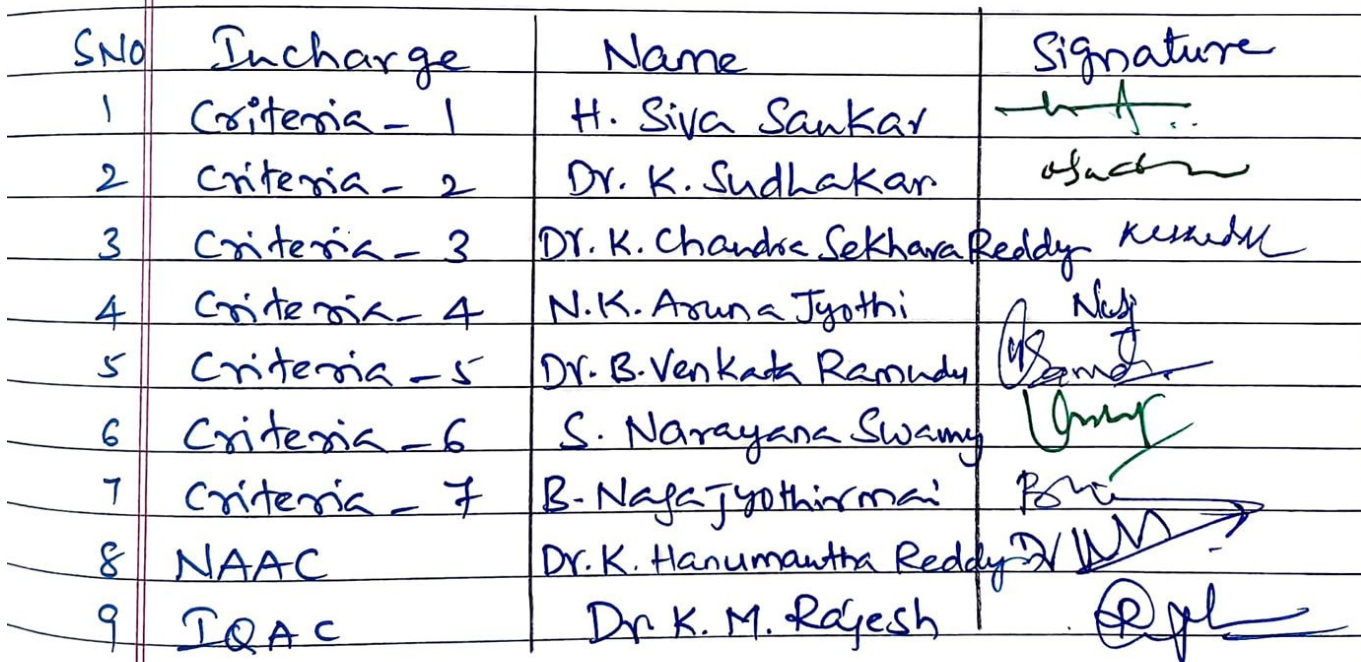 SNO Incharge Name Signature
1 Criteria - 1 H. Siva Sankar
2 Criteria - 2 Dr. K. Sudhakar
3 Criteria - 3 Dr. K. Chandra Sekhara Reddy
4 Criteria - 4 N.K. Aruna Jyothi
5 Criteria - 5 Dr. B. Venkata Ramudu
6 Criteria - 6 S. Narayana Swamy
7 Criteria - 7 B. Naga Jyothirmai
8 NAAC Dr. K. Hanumantha Reddy
9 IQAC Dr. K. M. Rajesh